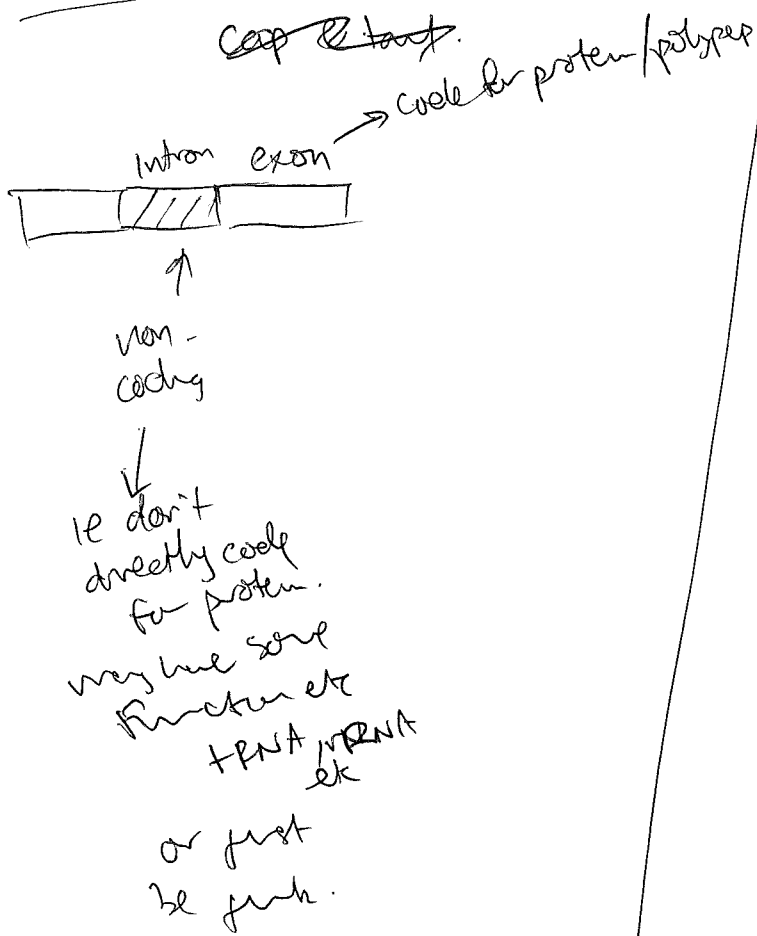 Cap & tail.
code for protein/polypep
intron exon
non-
coding
ie don't
directly code
for protein.
may have some
function etc
tRNA, rRNA
etc
or just
be junk.